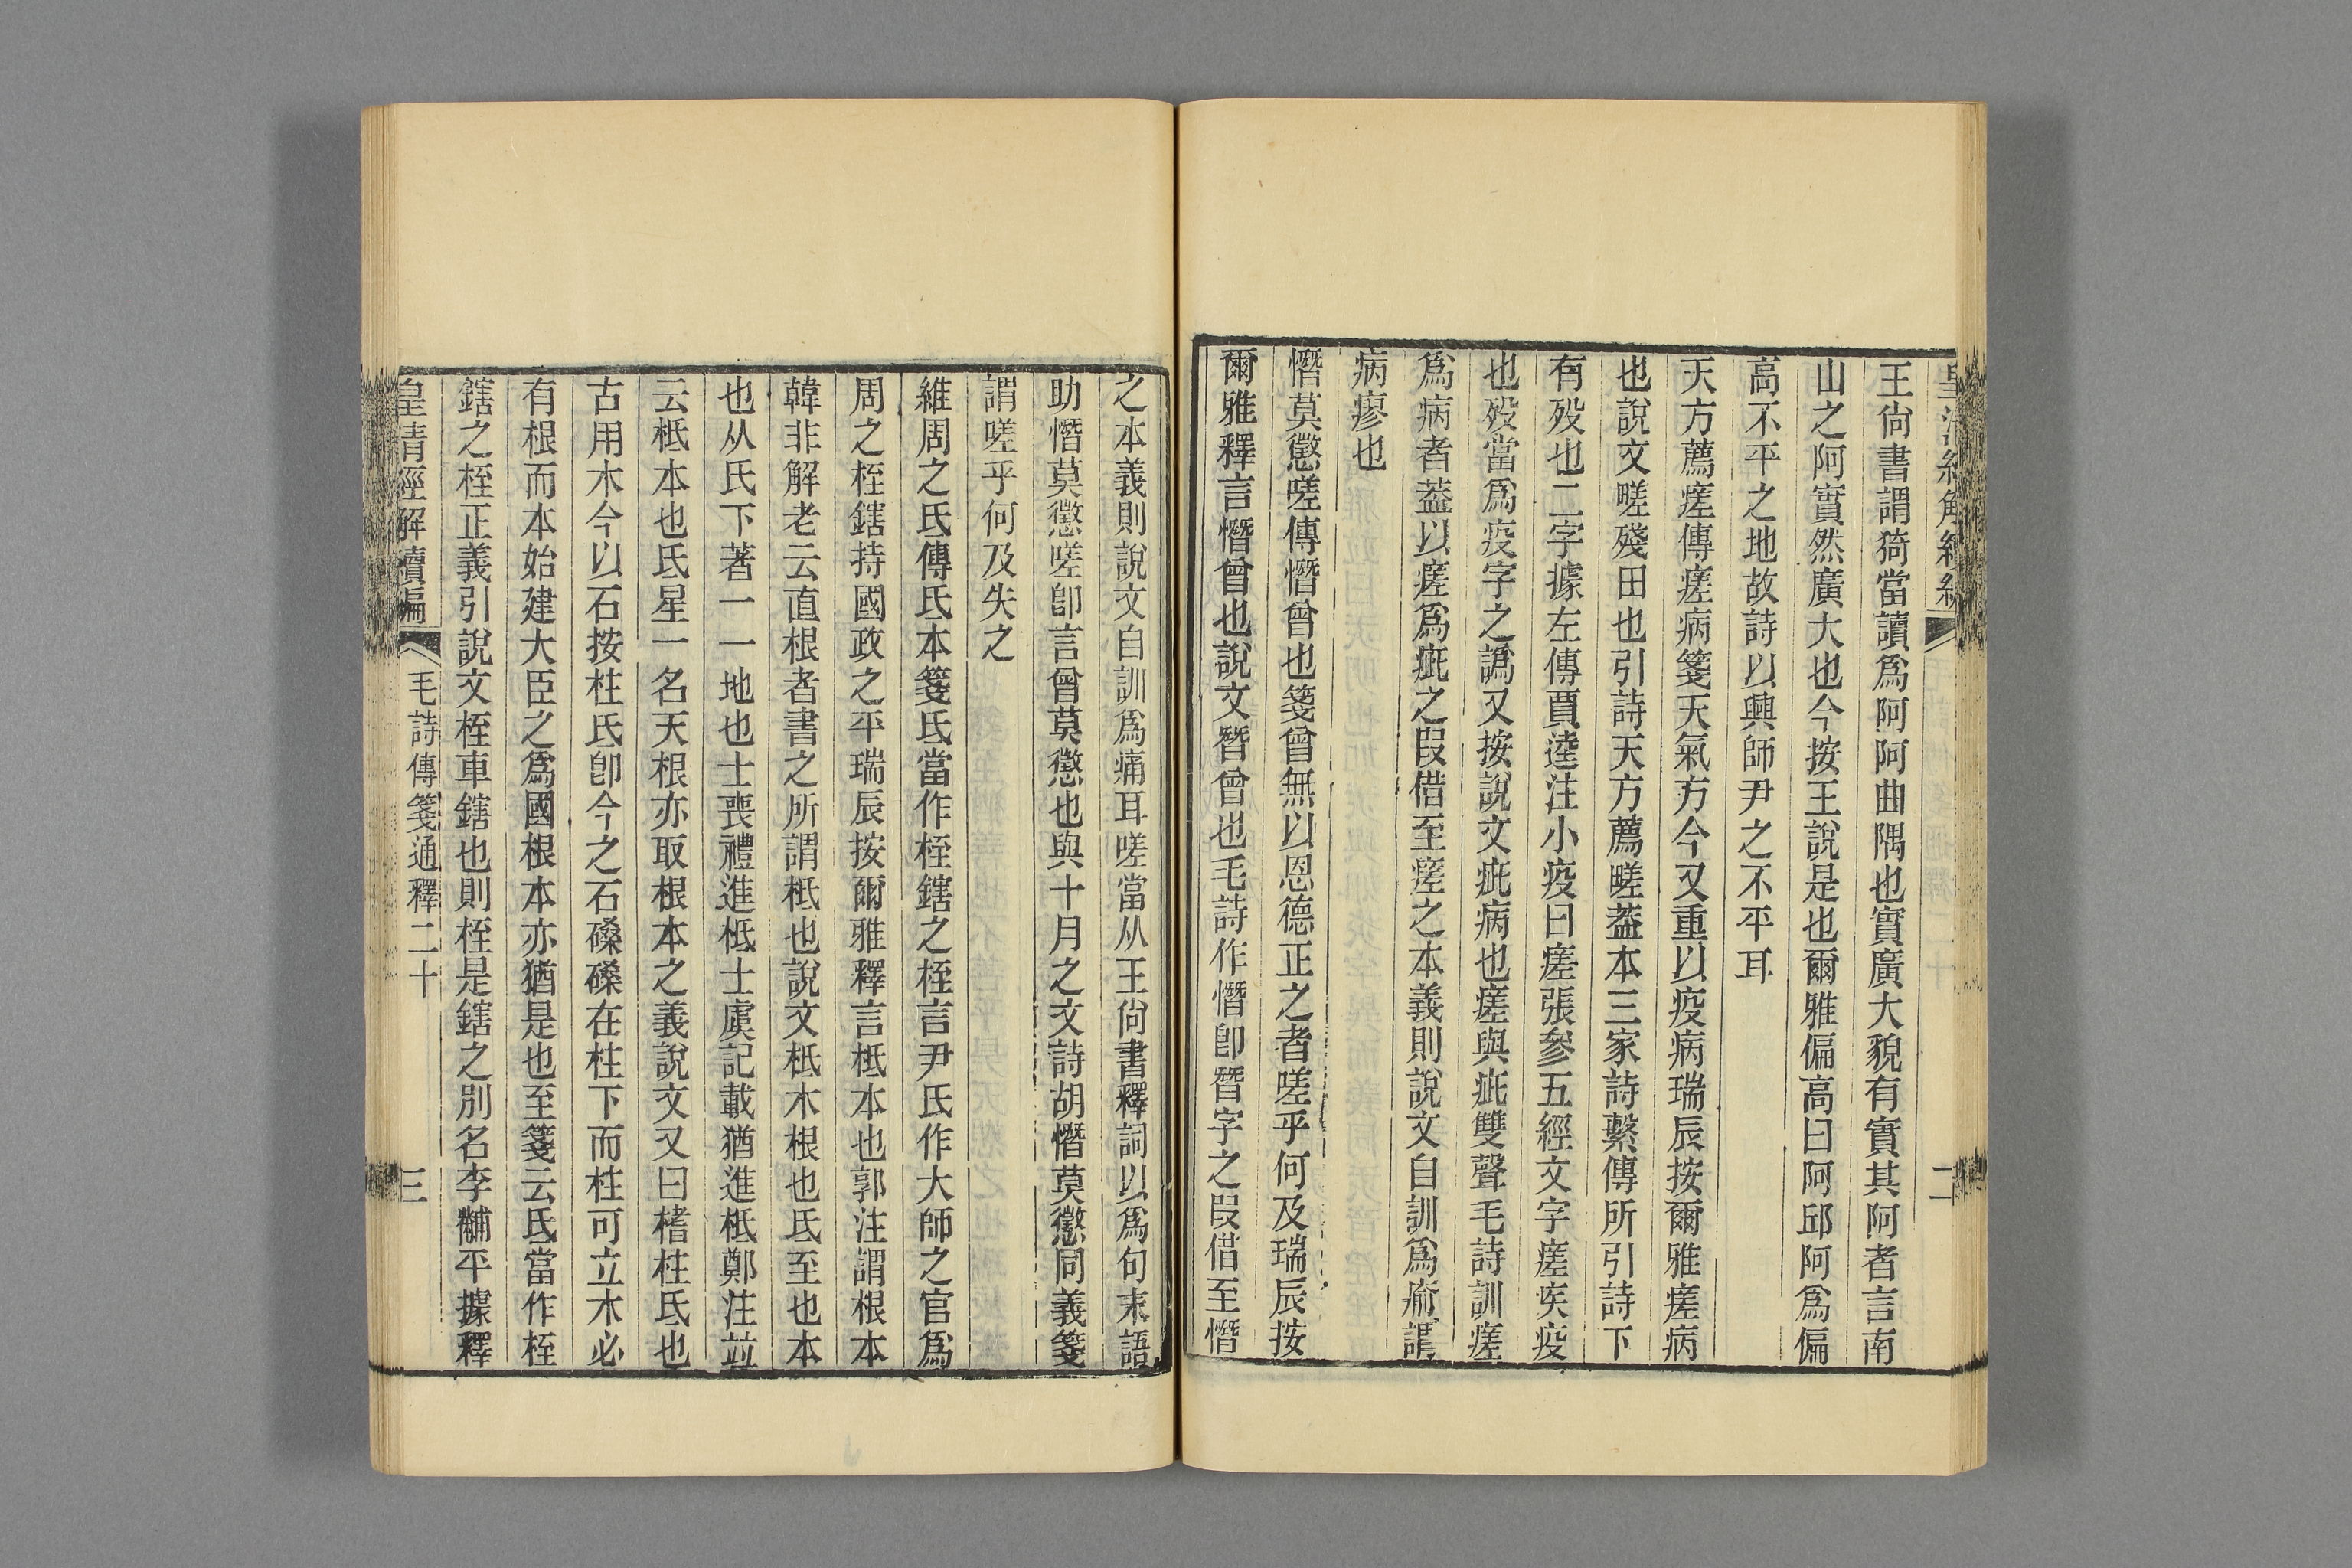 王尙書謂猗當讀爲阿阿曲隅也實廣大貌有實其阿者言南
山之阿實然廣大也今按王說是也爾雅偏高曰阿邱阿爲偏
高不平之地故詩以興師尹之不平耳
天方薦瘥傳瘥病箋天氣方今又重以疫病瑞辰按爾雅瘥病
也說文㽨殘田也引詩天方薦㽨葢本三家詩繫傳所引詩下
有歿也二字據左傳賈逵注小疫曰瘥張參五經文字瘥疾疫
也歿當爲疫字之譌又按說文疵病也瘥與疵雙聲毛詩訓瘥
爲病者葢以瘥爲疵之叚借至瘥之本義則說文自訓爲瘉謂
病瘳也
憯莫懲嗟傳憯曾也箋曾無以恩德正之者嗟乎何及瑞辰按
爾雅釋言憯曾也說文朁曾也毛詩作憯卽朁字之叚借至憯
之本義則說文自訓爲痛耳嗟當从王尙書釋詞以爲句末語
助憯莫懲嗟卽言曾莫懲也與十月之文詩胡憯莫懲同義箋
謂嗟乎何及失之
維周之氐傳氐本箋氐當作桎鎋之桎言尹氏作大師之官爲
周之桎鎋持國政之平瑞辰按爾雅釋言柢本也郭注謂根本
韓非解老云直根者書之所謂柢也說文柢木根也氐至也本
也从氏下著一一地也士喪禮進柢士虞記載猶進柢鄭注竝
云柢本也氐星一名天根亦取根本之義說文又曰榰柱氐也
古用木今以石按柱氐卽今之石磉磉在柱下而柱可立木必
有根而本始建大臣之爲國根本亦猶是也至箋云氐當作桎
鎋之桎正義引說文桎車鎋也則桎是鎋之別名李黼平據釋
皇淸經解續編
毛詩傳箋通釋二十
三